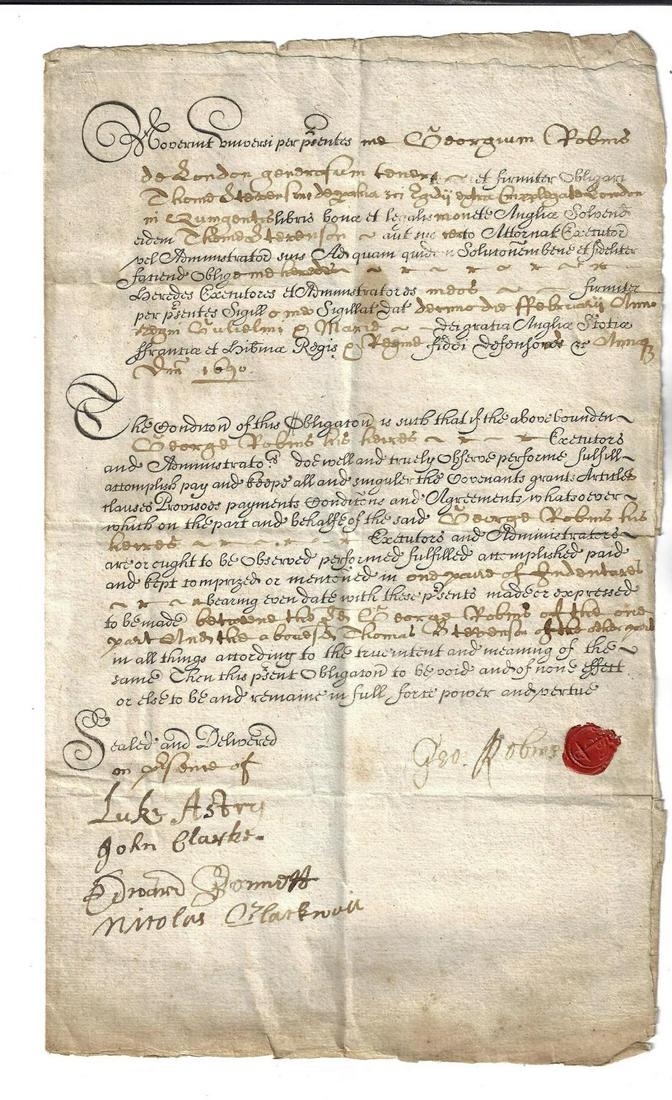 Noverint Universi per p'sentes me Georgium Robins
de London generosum teneri et firmiter Obligari
Thome Stevenson de Egidij extra Cripplegate London
in Quingentis libris bonæ et legalis monete Angliæ Solvend
eidem Thome Stevenson aut suo certo Attornat Executor
vel Administrator suis Ad quam quidem Soluc'onem bene et fideliter
faciend Oblige me heredes
Heredes Executores et Administratores meos firmiter
per p'sentes Sigill me Sigillat dat decimo die ffebruarij Anno
regni Gulielmi & Marie dei gratia Angliæ Scotiæ
ffranciæ et Hib'niæ Regis & Regine fidei defensor &c Annoq
Dni 1690.
The Condic'on of this Obligac'on is such that if the above bounden
George Robins his heires Executors
and Administrators doe well and truely Observe performe fulfill
accomplish pay and keepe all and singuler the Covenants grants Articles
clauses Provisoes payments Condic'ons and Agreements whatsoever
which on the part and behalfe of the said George Robins his
heires Executors and Administrators
are or ought to be Observed performed fulfilled accomplished paid
and kept comprized or menc'oned in one paire of Indentures
bearing even date with these p'sents made or expressed
to be made betweene the sd George Robins of the one
part And the abovesd Thomas Stevenson of the other part
in all things according to the true intent and meaning of the
same Then this p'sent Obligac'on to be void and of none effect
or else to be and remaine in full force power and vertue
Sealed and Delivered
in p'sence of
Geo. Robins
Luke Astry
John Clarke
Edward Bennett
Nicolas Blackwell